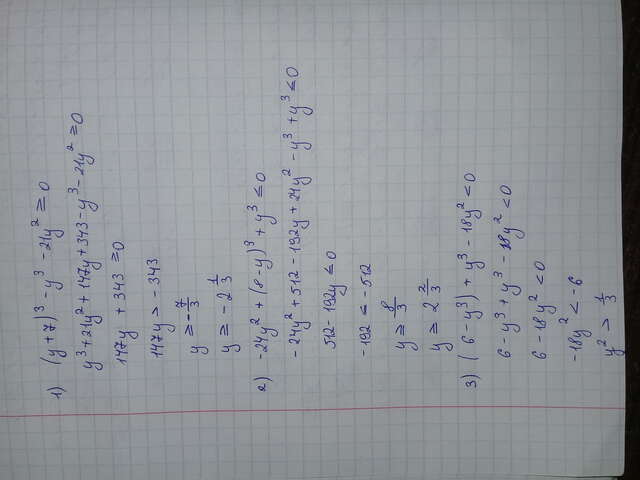 1) (y+7)³ - y³ - 21y² ≥ 0
y³ + 21y² + 147y + 343 - y³ - 21y² ≥ 0
147y + 343 ≥ 0
147y > - 343
y ≥ - 7/3
y ≥ - 2 1/3
2) - 24y² + (8-y)³ + y³ ≤ 0
- 24y² + 512 - 192y + 24y² - y³ + y³ ≤ 0
512 - 192y ≤ 0
- 192 ≤ - 512
y ≥ 8/3
y ≥ 2 2/3
3) (6 - y³) + y³ - 18y² < 0
6 - y³ + y³ - 18y² < 0
6 - 18y² < 0
- 18y² < - 6
y² > 1/3